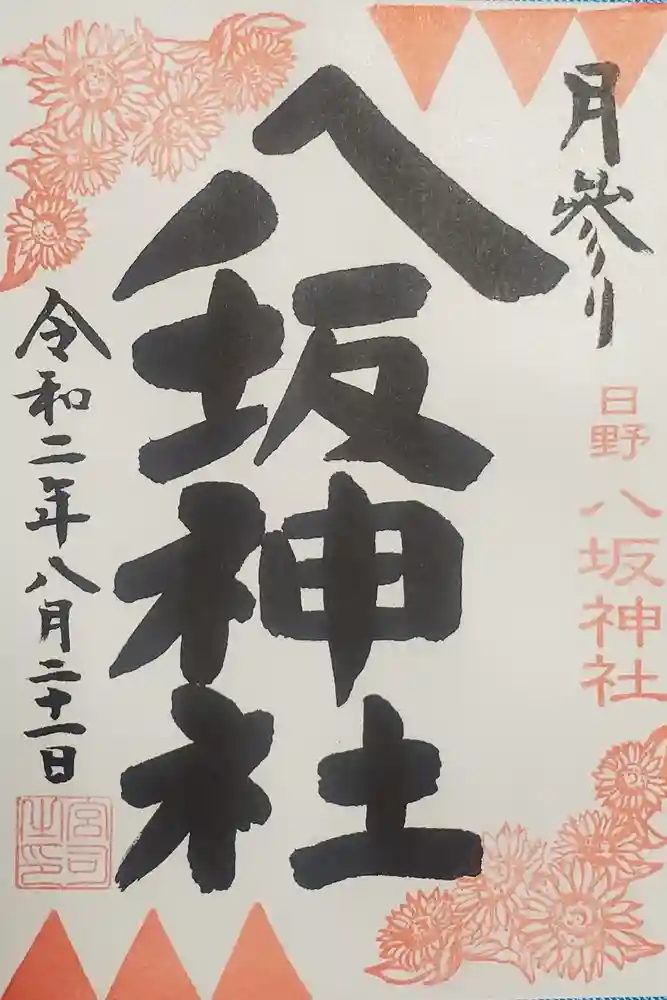 月參り
日野
八坂神社
八坂神社
令和二年八月二十一日
宮司之印